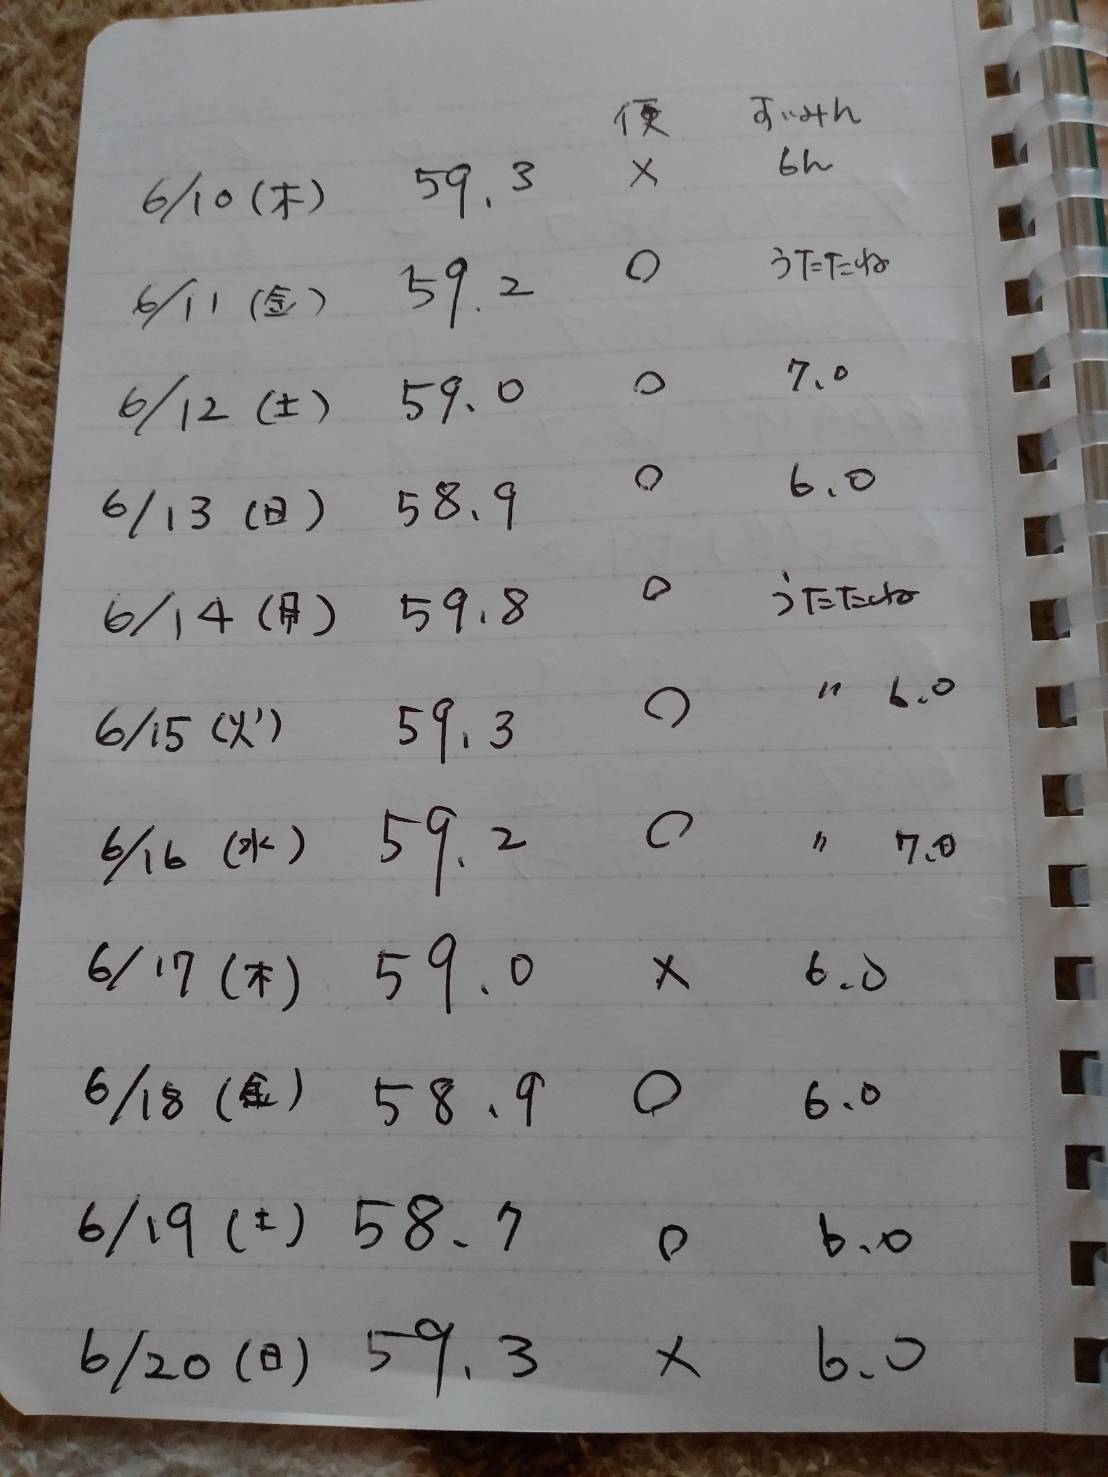 便 すいみん
6/10(木) 59.3 × 6h
6/11(金) 59.2 ○ うたたね
6/12(土) 59.0 ○ 7.0
6/13(日) 58.9 ○ 6.0
6/14(月) 59.8 ○ うたたね
6/15(火) 59.3 ○ 〃 6.0
6/16(水) 59.2 ○ 〃 7.0
6/17(木) 59.0 × 6.0
6/18(金) 58.9 ○ 6.0
6/19(土) 58.7 ○ 6.0
6/20(日) 59.3 × 6.0